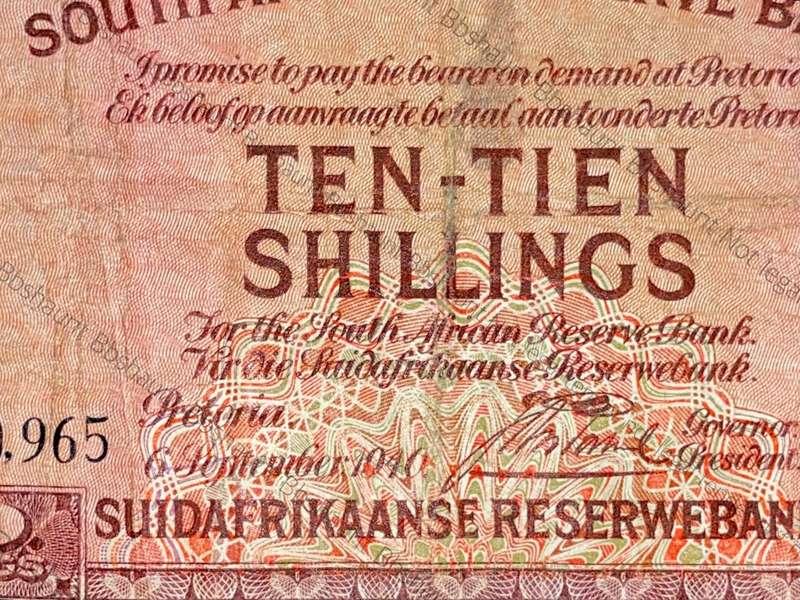 SOUTH AFRICAN RESERVE BA
I promise to pay the bearer on demand at Pretoria
Ek beloof op aanvraag te betaal aan toonder te Pretori
TEN-TIEN
SHILLINGS
For the South African Reserve Bank.
Vir die Suidafrikaanse Reserwebank.
Pretoria
Governor.
.965
6 September 1940
President
SUIDAFRIKAANSE RESERWEBAN